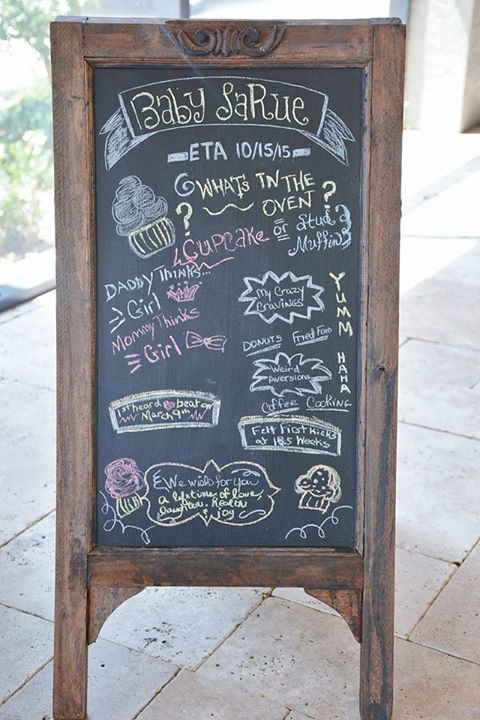 Baby LaRue
ETA 10/15/15
WHATs IN THE
OVEN?
?
CUPCake
or
Stud
Muffin?
DADDY THINKS...
Girl
Mommy THINKS
Girl
My Crazy
Cravings
DONUTS Fried Food
YUMM
Weird
Aversions
Coffee Cooking
HAHA
1st heard beat on
March 9th
Felt First Kicks
at 18.5 Weeks
We wish for you
a lifetime of love,
laughter, Health
& joy